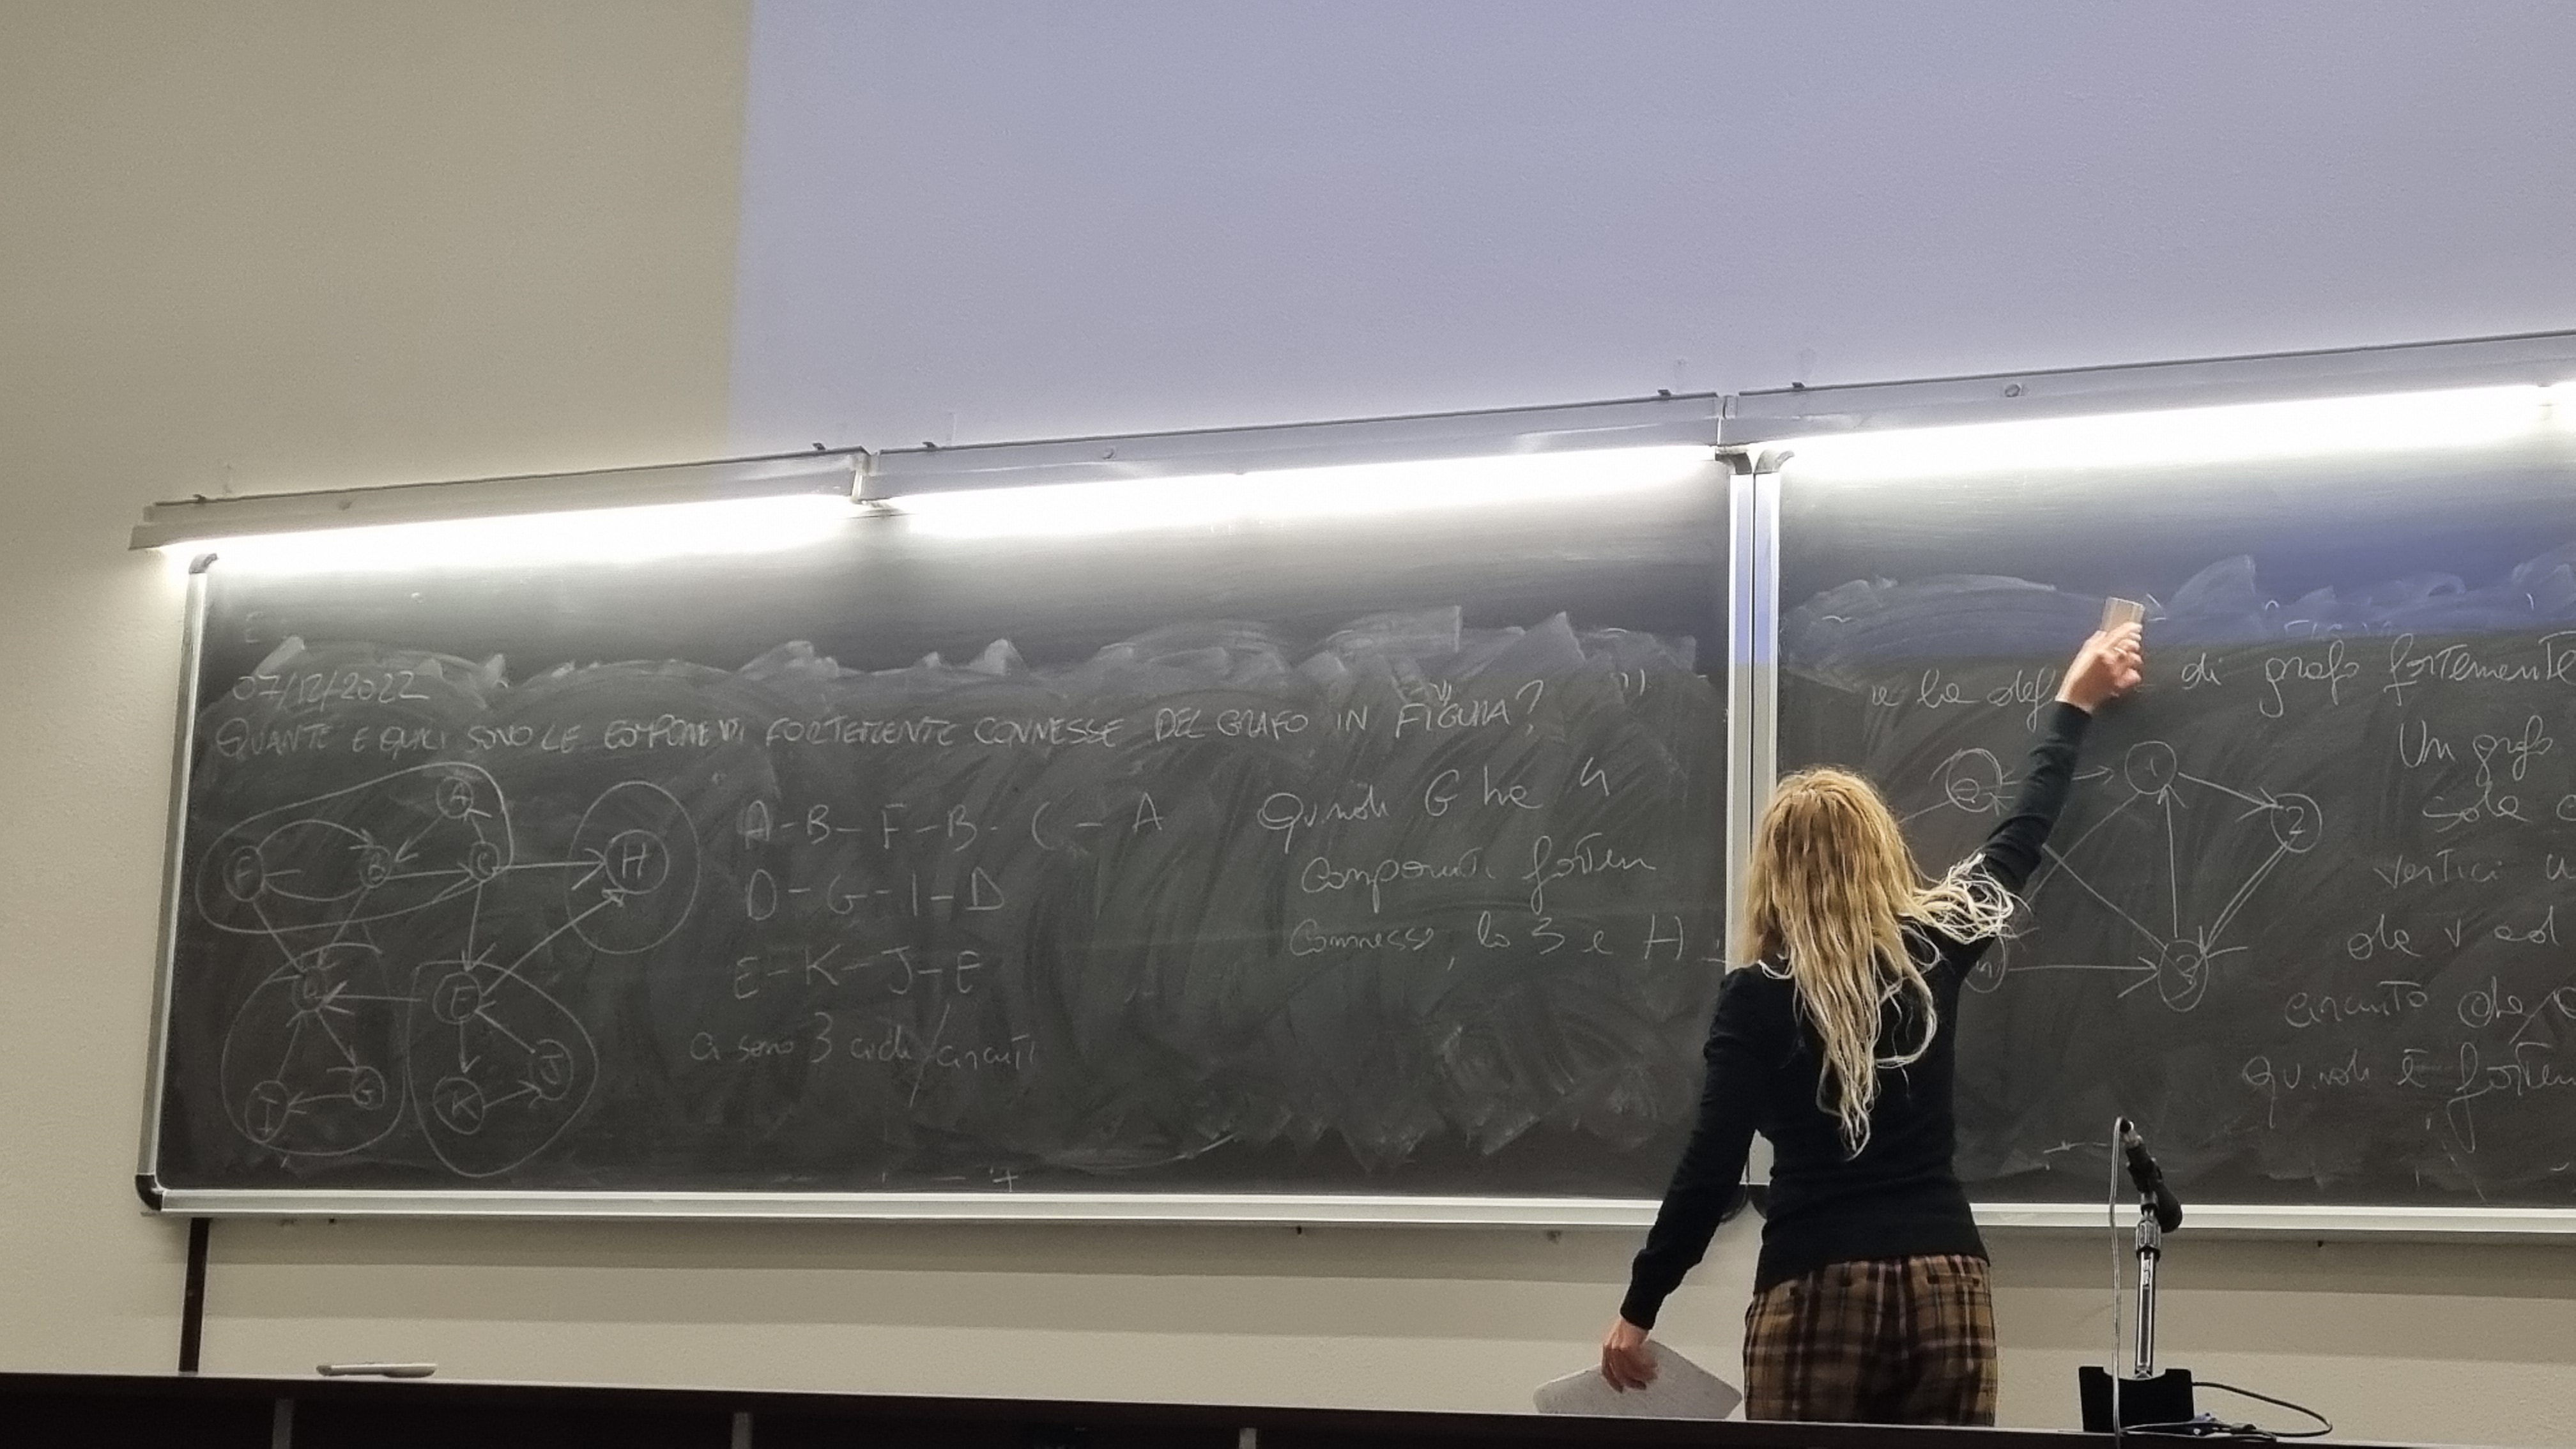 07/12/2022
QUANTE E QUALI SONO LE COMPONENTI FORTEMENTE CONNESSE DEL GRAFO IN FIGURA?
A
F B C H
D E
J
I G K
A-B-F-B-C-A
D-G-I-D
E-K-J-E
ci sono 3 cicli/circuiti
Quindi G ha 4
componenti fortem
connesse, le 3 e H
la def di grafo fortemente
1
2
3
Un grafo
vertici
da v ad
circuito che
quindi è